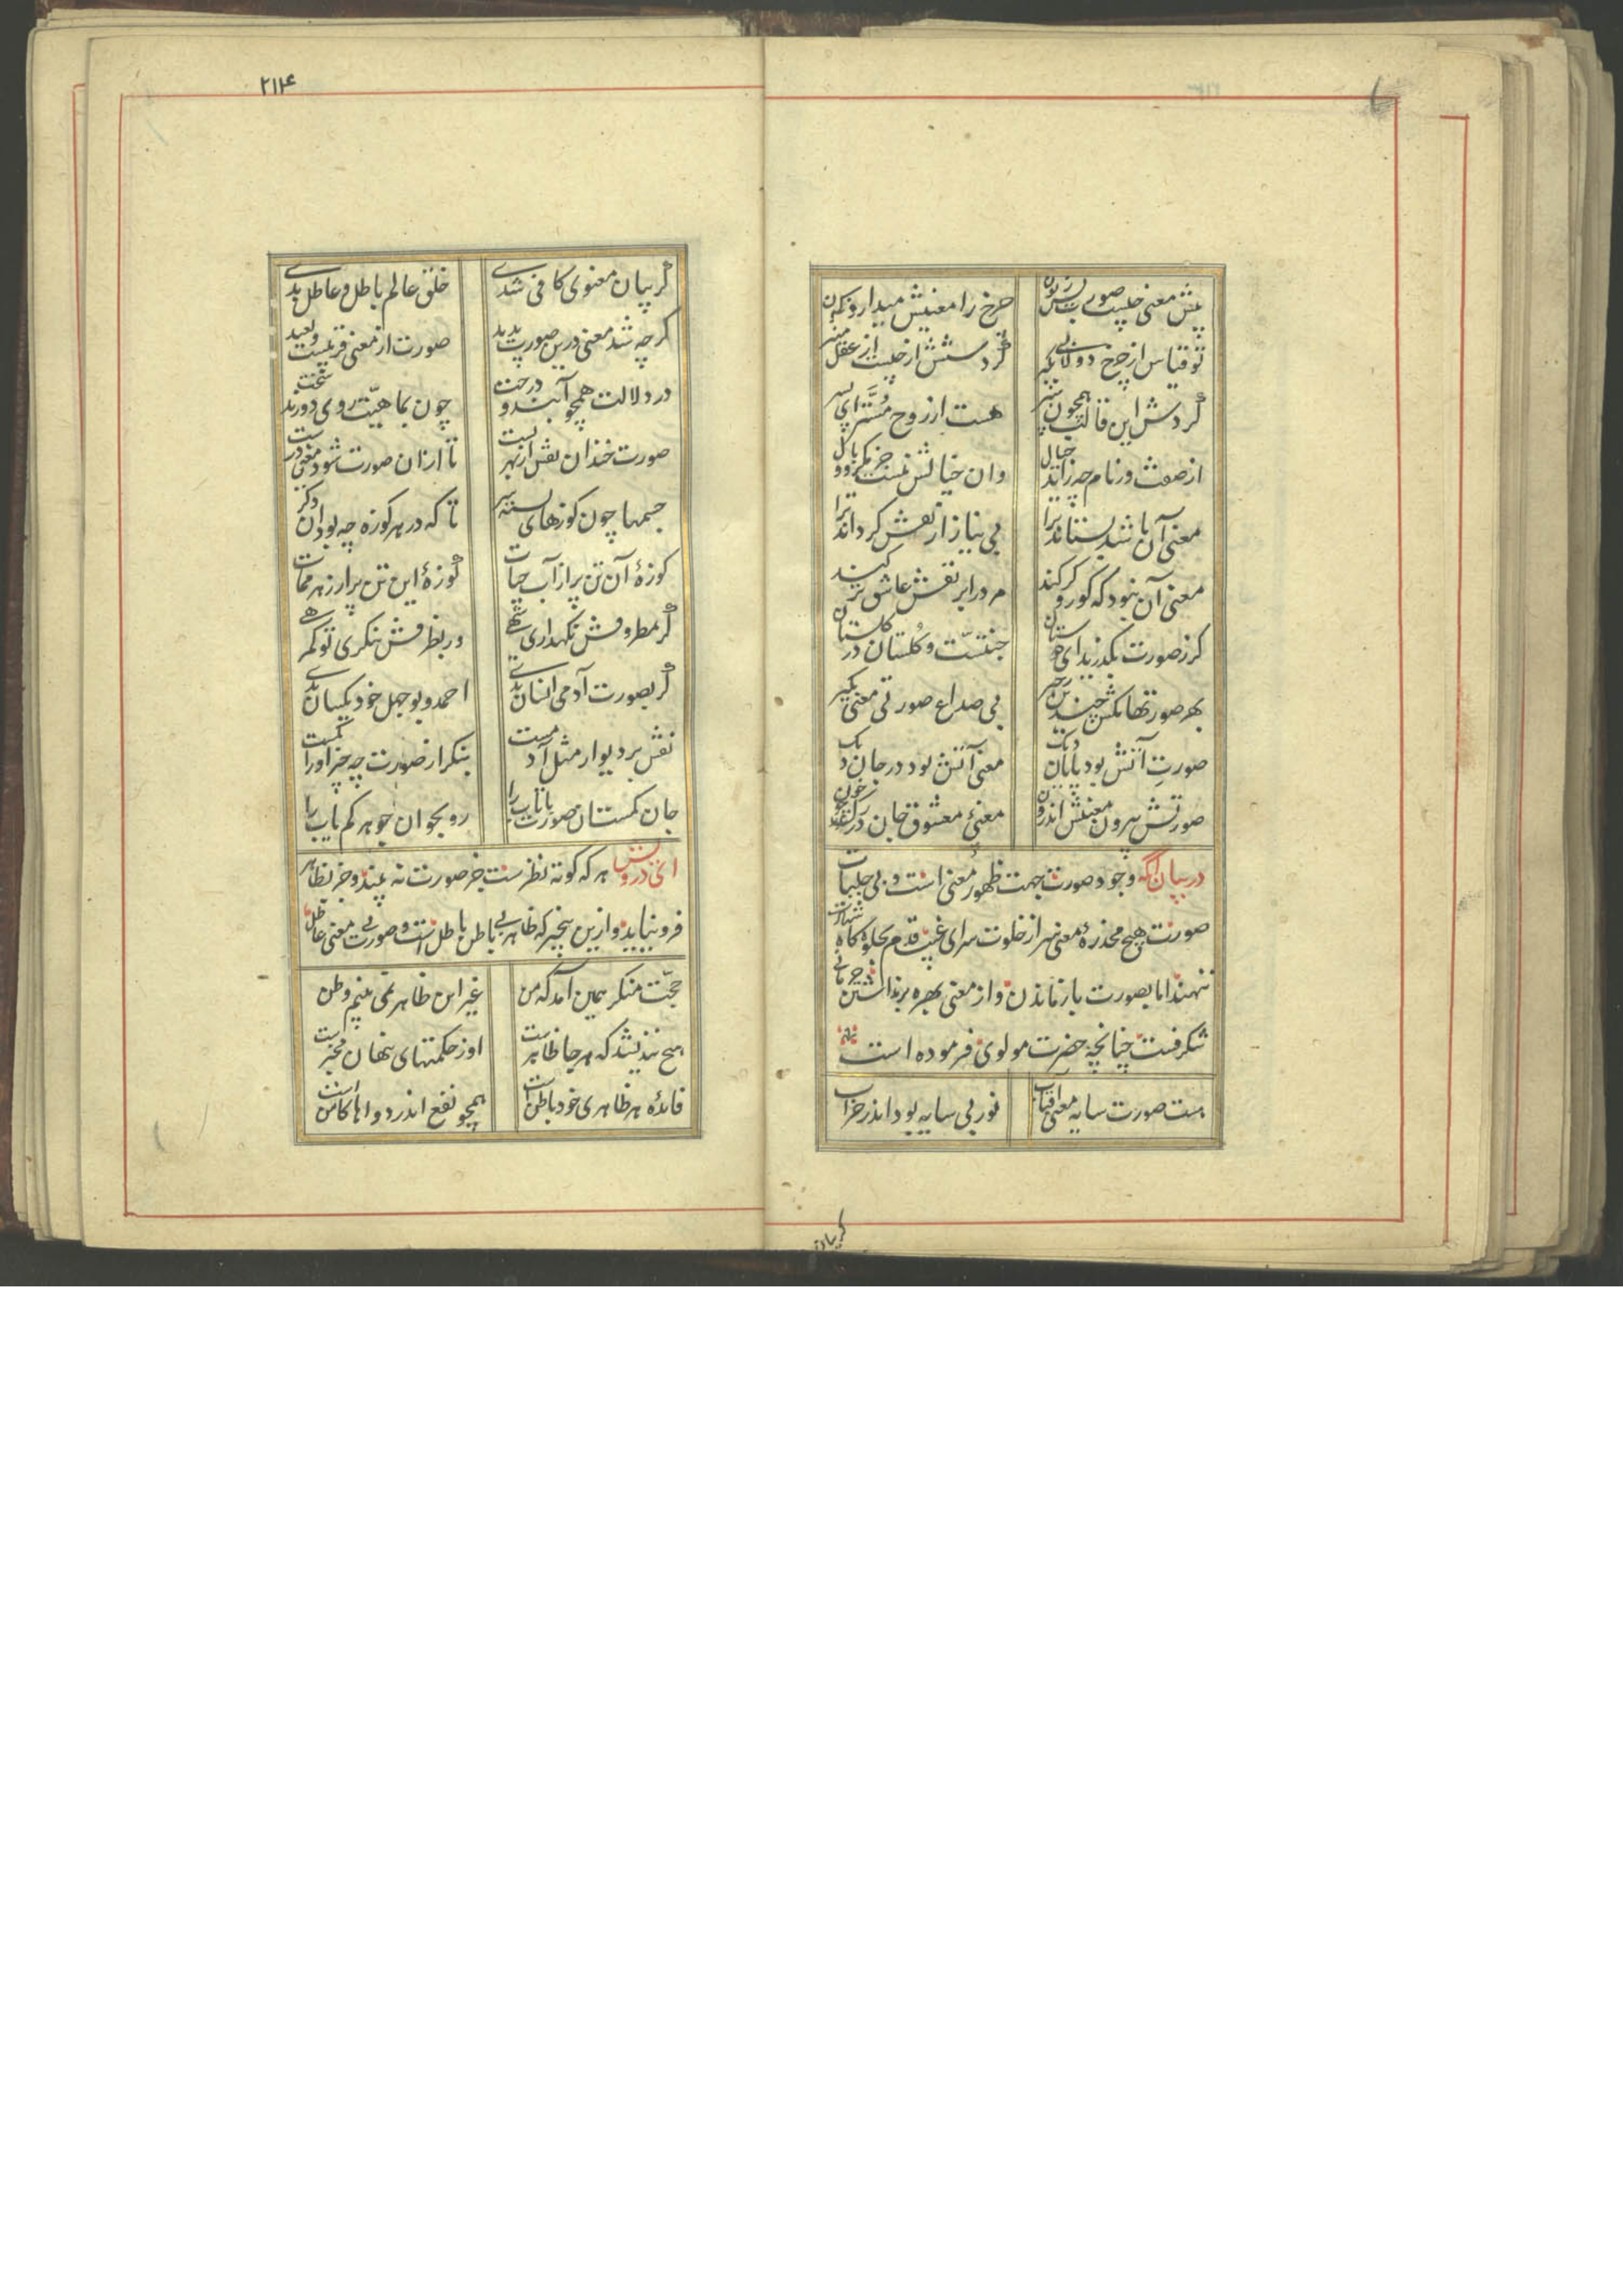 پیش معنی چیست صورت بس زبون چرخ را معنیش میدارد نکون
تو قیاس از چرخ دولابی بکیر گردشش از چیست از عقل منیر
گردش این قالب همچون سپر هست از روح مستر ای پسر
از صفت وز نام چه زاید خیال وان خیالش نیست جز
معنی آن باشد بستاند ترا بی نیاز از نقش کرداند ترا
معنی آن نبود که کور و کر کند مرد را بر نقش عاشق تر کند
کر ز صورت بکذرید ای دوستان جنتست و کلستان در کلستان
بهر صورتها مکش چندین زحیر بی صداع صورتی معنی بکیر
صورت آتش بود پایان دیک معنی آتش بود در جان دیک
صورتش بیرون و معنیش اندرون معنی معشوق جان در رک چو خون
در بیان آنکه وجود صورت جهت ظهور معنی است و بی جلباب
صورت هیچ مخدره معنی سر از خلوت سرای غیب قدم بجلوه کاه شهادت
ننهند اما بصورت باز ماندن و از معنی بهره برنداشتن حرمانی
شکرفست چنانچه حضرت مولوی فرموده است
هست صورت سایه معنی آفتاب نور بی سایه بود اندر خراب
گر بیان
۲۱۴
گر بیان معنوی کافی شدی خلق عالم باطل و عاطل بدی
کر چه شد معنی درین صورت پدید صورت از معنی قریبست و بعید
در دلالت همچو آبند و درخت چون بماهیت روی دورند سخت
صورت خندان نقش از بهر تست تا ازان صورت شود معنی درست
جسمها چون کوزهای بسته سر تا که در هر کوزه چه بود آن دکر
کوزهٔ آن تن پر از آب حیات کوزهٔ این تن پر از زهر ممات
گر بمظروفش نکهداری شهی ور بظرفش بنکری تو کمرهی
گر بصورت آدمی انسان بدی احمد و بوجهل خود یکسان بدی
نقش بر دیوار مثل آدمست بنکر از صورت چه چیز او را کمست
جان کمست آن صورت با تاب را رو بجو آن جوهر کم یاب را
ای درویش هر که کوته نظرست جز صورت نه بیند و جز بظاهر
فرو نیاید و ازین بیخبر که ظاهر بی باطن باطل است و صورت بی معنی عاطل
حجت منکر همین آمد که من غیر این ظاهر نمی بینم وطن
هیچ نندیشد که هر جا ظاهریست او ز حکمتهای پنهان مخبریست
فائده هر ظاهری خود باطن است همچو نفع اندر دواها کامن است